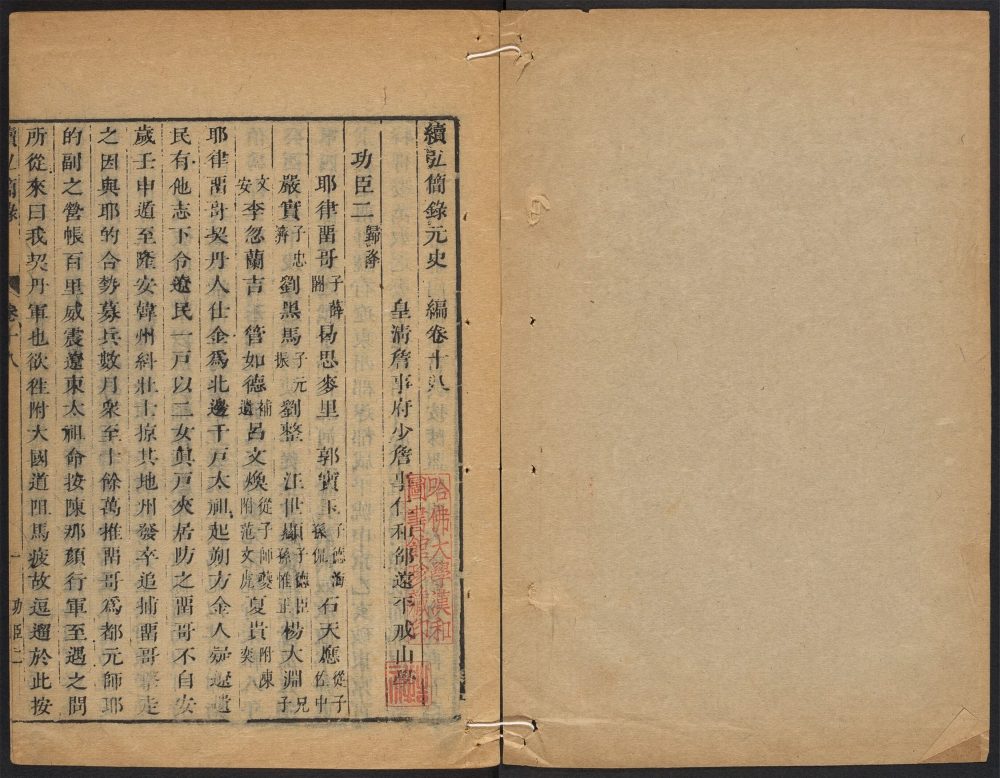 續弘簡錄元史 編卷十八
皇清詹事府少詹事仁和邵遠平戒山學
功臣二 歸降
耶律畱哥 子薛闍 曷思麥里 郭寶玉 子德海 孫侃 石天應 從子佐中
嚴實 子忠濟 劉黑馬 子元振 劉整 汪世顯 子德臣 孫惟正 楊大淵 兄子
文安 李忽蘭吉 管如德 補遺 呂文煥 從子師夔 附范文虎 夏貴 附陳奕
耶律畱哥契丹人仕金爲北邊千戸太祖起朔方金人疑遼遺
民有他志下令遼民一戸以二女眞戸夾居防之畱哥不自安
歲壬申遁至隆安韓州糾壯士掠其地州發卒追捕畱哥擊走
之因與耶的合勢募兵數月衆至十餘萬推畱哥爲都元帥耶
的副之營帳百里威震遼東太祖命按陳那顏行軍至遇之問
所從來曰我契丹軍也欲徃附大國道阻馬疲故逗遛於此按
續弘簡錄 卷十八 一 功臣二
哈佛大學漢和
圖書館珍藏印